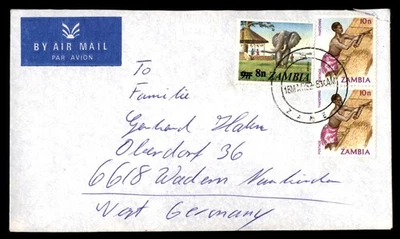 BY AIR MAIL
PAR AVION
8n
ZAMBIA
10n
ZAMBIA
10n
ZAMBIA
To
Familie
Gerhard Hahn
Oberdorf 36
6618 Wadern
West Germany